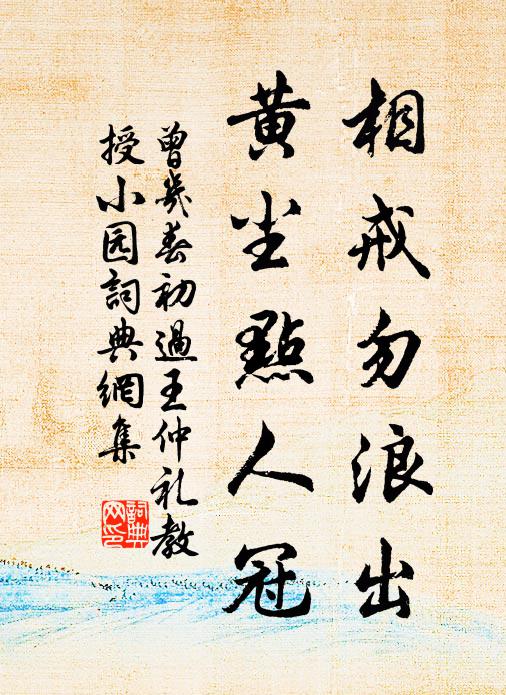 相戒勿浪出
黄尘點人冠
曾幾春初過王仲礼教
授小园詞典網集
詞典网印